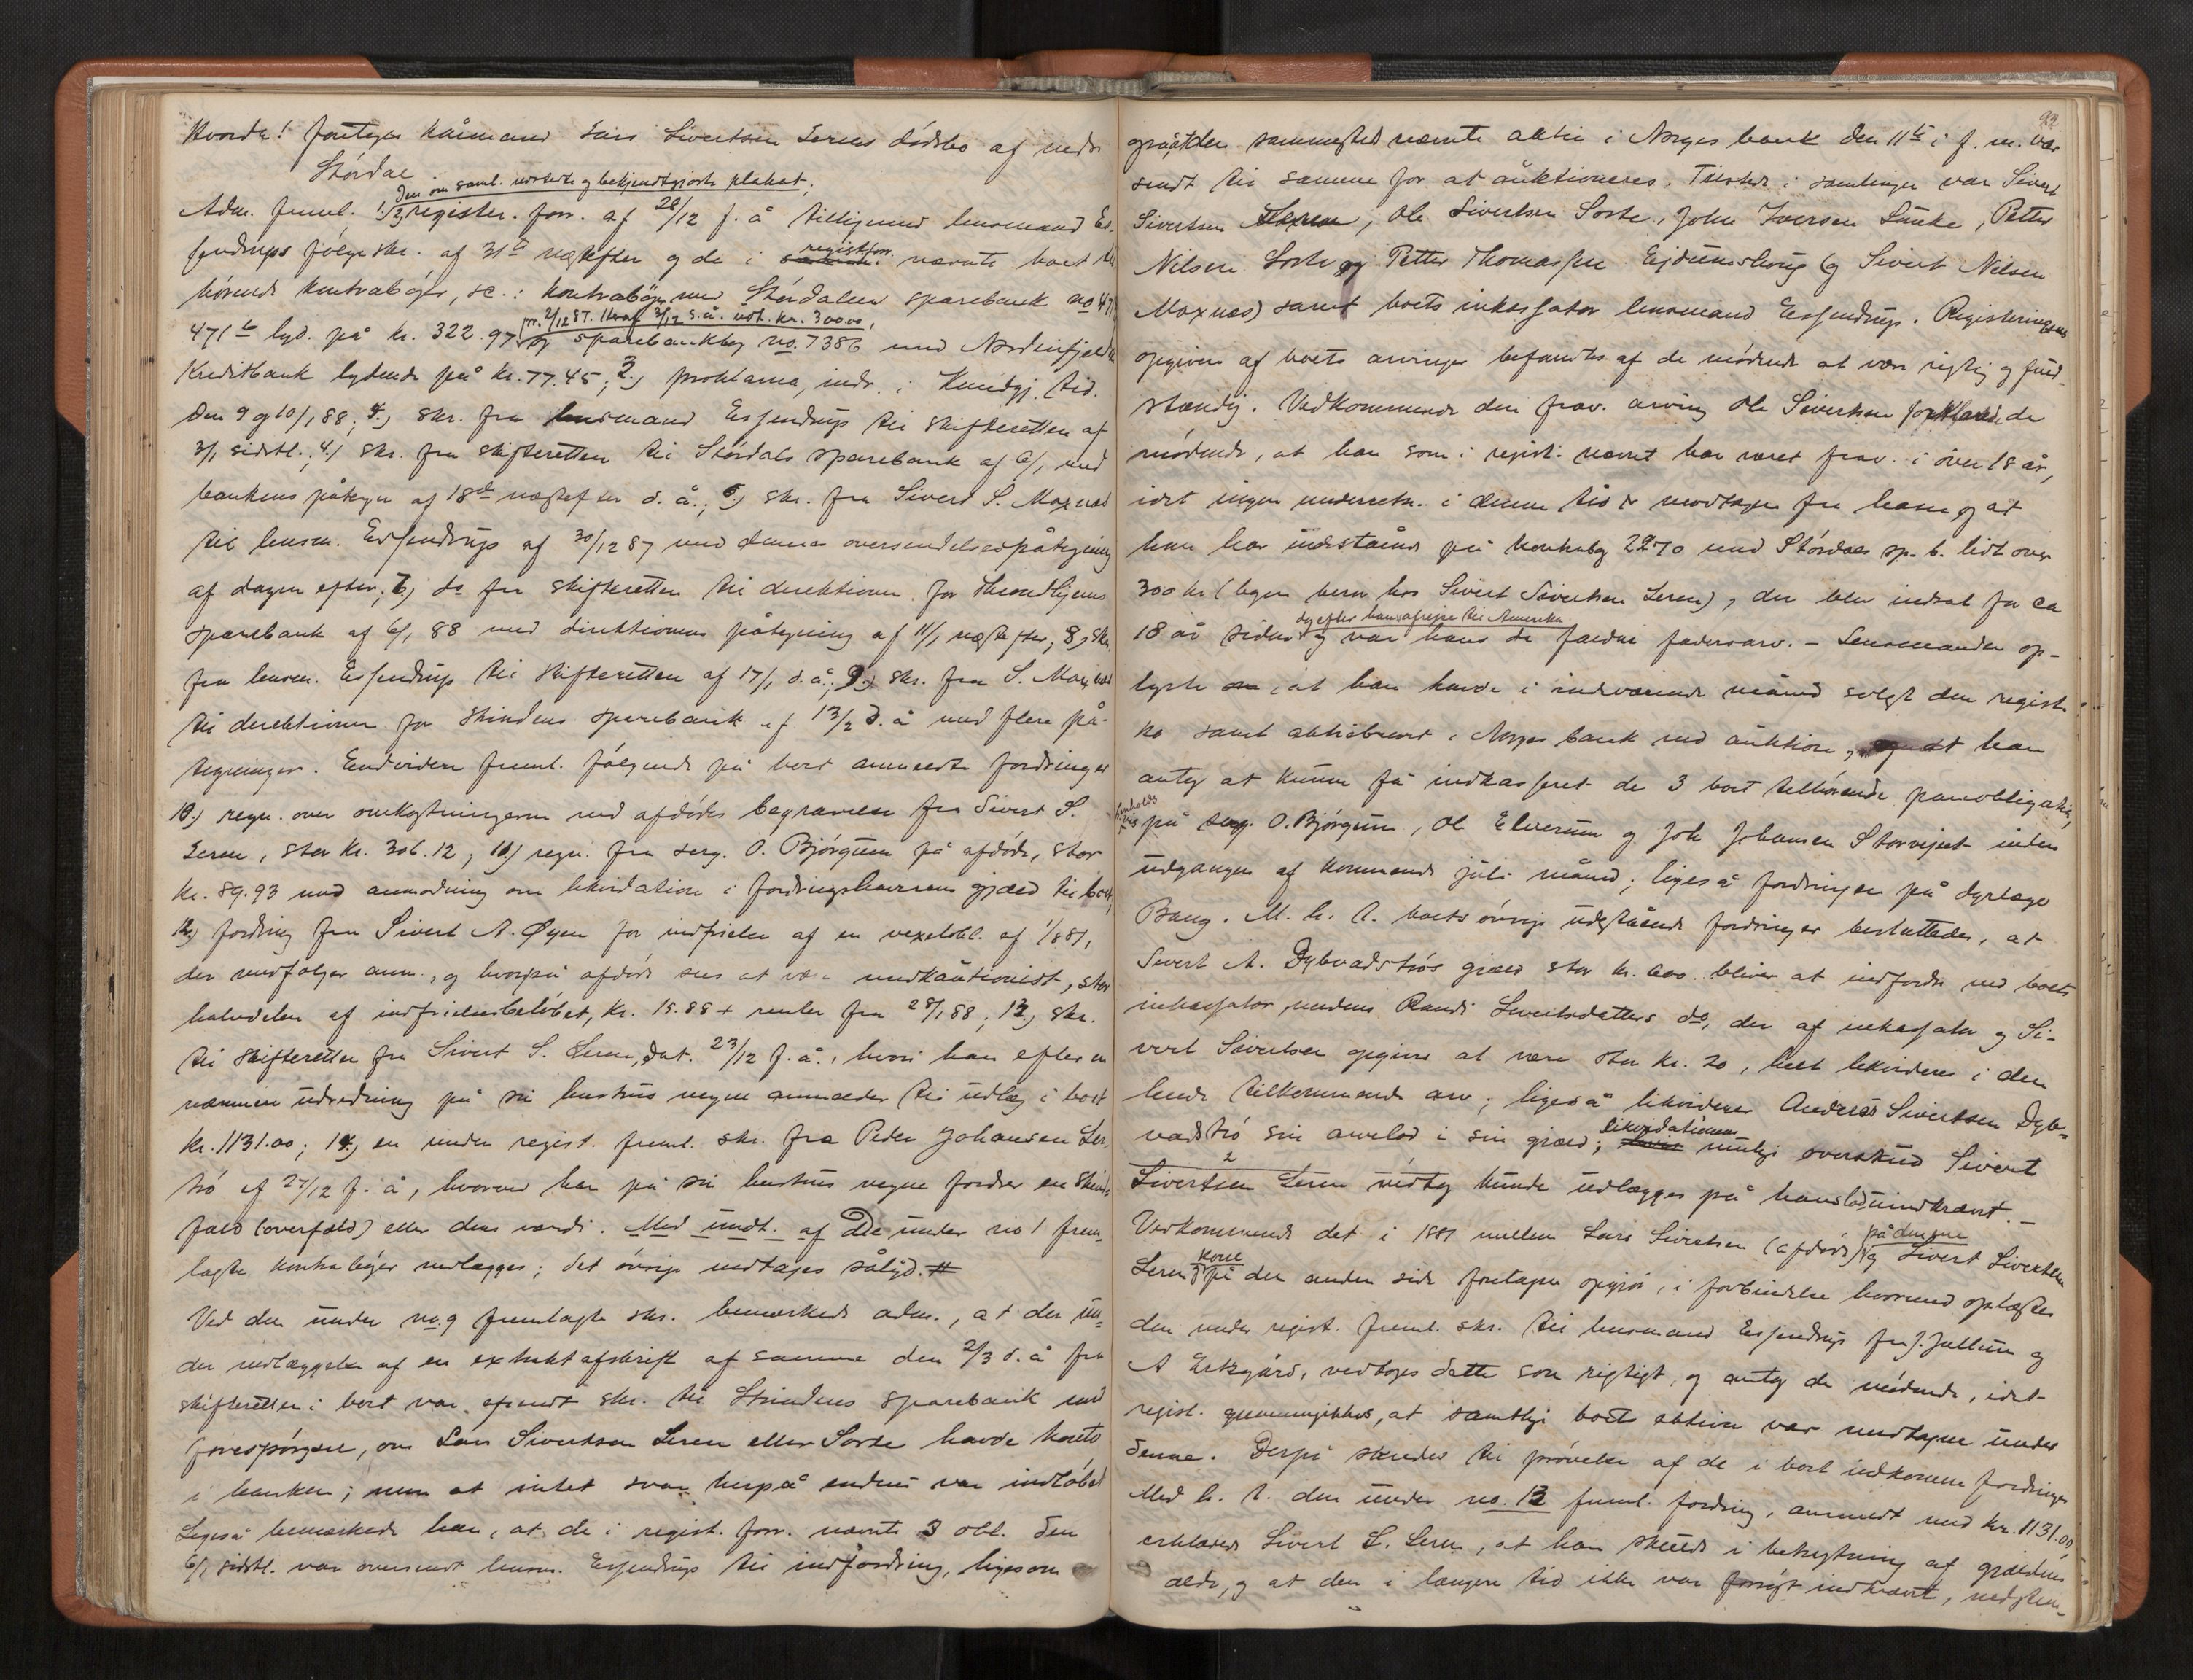 hvorda! foretoges kårmand Lars Sivertsen Lerens dødsbo af nedr
Stördal.
den om saml. udstedte og bekjendtgjorte plakat;
Adm. freml. 1) 2) register. forr. af 28/12 f. å tilligemed lensmand Es-
sendrups følgeskr. af 31te næstefter og de i registforr. nævnte boet til
hörende kontrabøger, sc.: kontrabog med Stördalens sparebank no 471
fr. 2/12 87. Hvraf 3/12 s. å. udt. kr. 300.00,
471 b lyd. på kr. 322.97 og sparebankbog no. 7386 med Nordenfjeldske
Kreditbank lydende på kr. 77.45; 2.) proklama, indr. i Kundgj. tid.
den 9 og 10/1 88; 3.) skr. fra lensmand Essendrup til skifteretten af
3/1 sidstl.; 4.) skr. fra skifteretten til Stördals sparebank af 6/1 med
bankens påtegn af 18de næstefter d. å.; 5.) skr. fra Sivert S. Moxnæs
til lensm. Essendrup af 30/12 87 med dennes oversendelsespåtegning
af dagen efter; 7.) do fra skifteretten til direktionen for Throndhjems
sparebank af 6/1 88 med direktionens påtegning af 11/1 næstefter; 8.) skr.
fra lensm. Essendrup til skifteretten af 17/1 d. å; 9.) skr. fra S. Moxnæs
til direktionen for Strindens sparebank af 13/2 d. å med flere på-
tegninger. Endvidere freml. følgende på boet anmeldte fordringer
10.) regn. over omkostningerne med afdødes begravelse fra Sivert S.
Leren, stor kr. 306.12; 11.) regn. fra serg. O. Björgum på afdøde, stor
kr. 89.93 med anmodning om likvidation i fordringshaverens gjæld til boet,
12.) fordring fra Sivert A. Øyen for indfrielse af en vexelobl. af 1/8 81,
der medfølger anm., og hvorpå afdøde sees at være medkautionist, stor
halvdelen af indfrielsesbeløbet, kr. 15.88 + renter fra 28/1 88; 13.) skr.
til skifteretten fra Sivert S. Leren, dat. 23/12 f. å., hvori han efter en
nærmere udredning på sin hustrus vegne anmelder til udlæg i boet
kr. 1131.00; 14.) en under regist. freml. skr. fra Peder Johansen Ler-
trö af 27/12 f. å, hvorved han på sin hustrus vegne fordrer en Skind-
fæld (overfæld) eller dens værdi. Med undt. af De under no 1 frem-
lagte kontrabøger vedlægges; det övrige indtages sålyd. #
Ved den under no. 9 fremlagte skr. bemærkede adm., at der un-
der vedlæggelse af en extraktafskrift af samme den 2/3 d. å fra
skifteretten i boet var afsendt skr. til Strindens sparebank med
forespörgsel, om Lars Sivertsen Leren eller Sorte havde konto
i banken; men at intet svar herpå endnu var indløbet
Ligeså bemærkede han, at de i regist. forr. nævnte 3 obl. den
6/1 sidstl. var oversendt lensm. Essendrup til indfordring, ligesom
99
også den sammesteds nævnte aktie i Norges bank den 11te i f. m. var
sendt til samme for at auktioneres. Tilstede i samlingen var Sivert
Sivertsen Leren, Ole Sivertsen Sorte, John Iversen Lünke, Petter
Nilsen Sorte og Petter Thomassen Ejdumshaug (og Sivert Nilsen
Moxnæs) samt boets inkassator lensmand Essendrup. Registeringens
opgiver af boets arvinger befandtes af de mödende at være rigtig og fuld-
stændig. Vedkommende den frav. arving Ole Sivertsen forklarede de
mödende, at han som i regist. nævnt har været frav. i over 18 år,
idet ingen underretn. i denne tid er modtagen fra ham og at
han har indestående på kontrabog 2270 med Stördals sp. b. lidt over
300 kr (bogen bero hos Sivert Sivertsen Leren), der blev indsat for ca
og efter hans afrejse til Amerika
18 år siden og var hans da faldne fadersarv. – Lensmanden op-
lyste at han havde i indeværende måned solgt den regist.
ko samt aktiebrevet i Norges bank ved auktion, og at han
antog at kunne få indkasseret de 3 boet tilhörende panteobligatio,
henholdsvis
på serg. O. Björgum, Ole Elverum og Joh Johansen Storvejset inden
udgangen af kommende juli måned; ligeså fordringen på dyrlæge
Bang. M. h. t. boets övrige udestående fordringer besluttedes, at
Sivert A. Dybvadströs gjæld stor kr. 600 bliver at indfordre ved boets
inkassator, medens Randi Sivertsdatters do, der af inkassator og Si-
vert Sivertsen opgives at være stor kr. 20, helt likvideres i den
hende tilkommende arv; ligeså likviderer Andreas Sivertsen Dyb-
vadströ sin arvelod i sin gjæld; likvidationens mulige overskud Sivert
Sivertsen Leren vedtog kunde udlægges på hans lod uindkrævt. –
Vedkommende det i 1881 mellem Lars Sivertsen (afdöde) på den ene og Sivert Sivertsen
kone
Leren på den anden side foretagne opgjör, i forbindelse hvormed oplæstes
den under regist. freml. skr. til lensmand Essendrup fra J. Jullum og
A Ertsgård, vedtoges dette som rigtigt, og antog de mödende, idet
regist. gjennemgikkes, at samtlige boets aktiva var medtagne under
denne. Derpå skredes til prövelse af de i boet indkomne fordringer
Med h. t. den under no. 13 freml. fordring, anmeldt med kr. 1131.00,
erklærede Sivert S. Leren, at han skulde i betragtning af gjældens
ælde, og at den i længere tid ikke var forsögt indkrævt, nedstem-